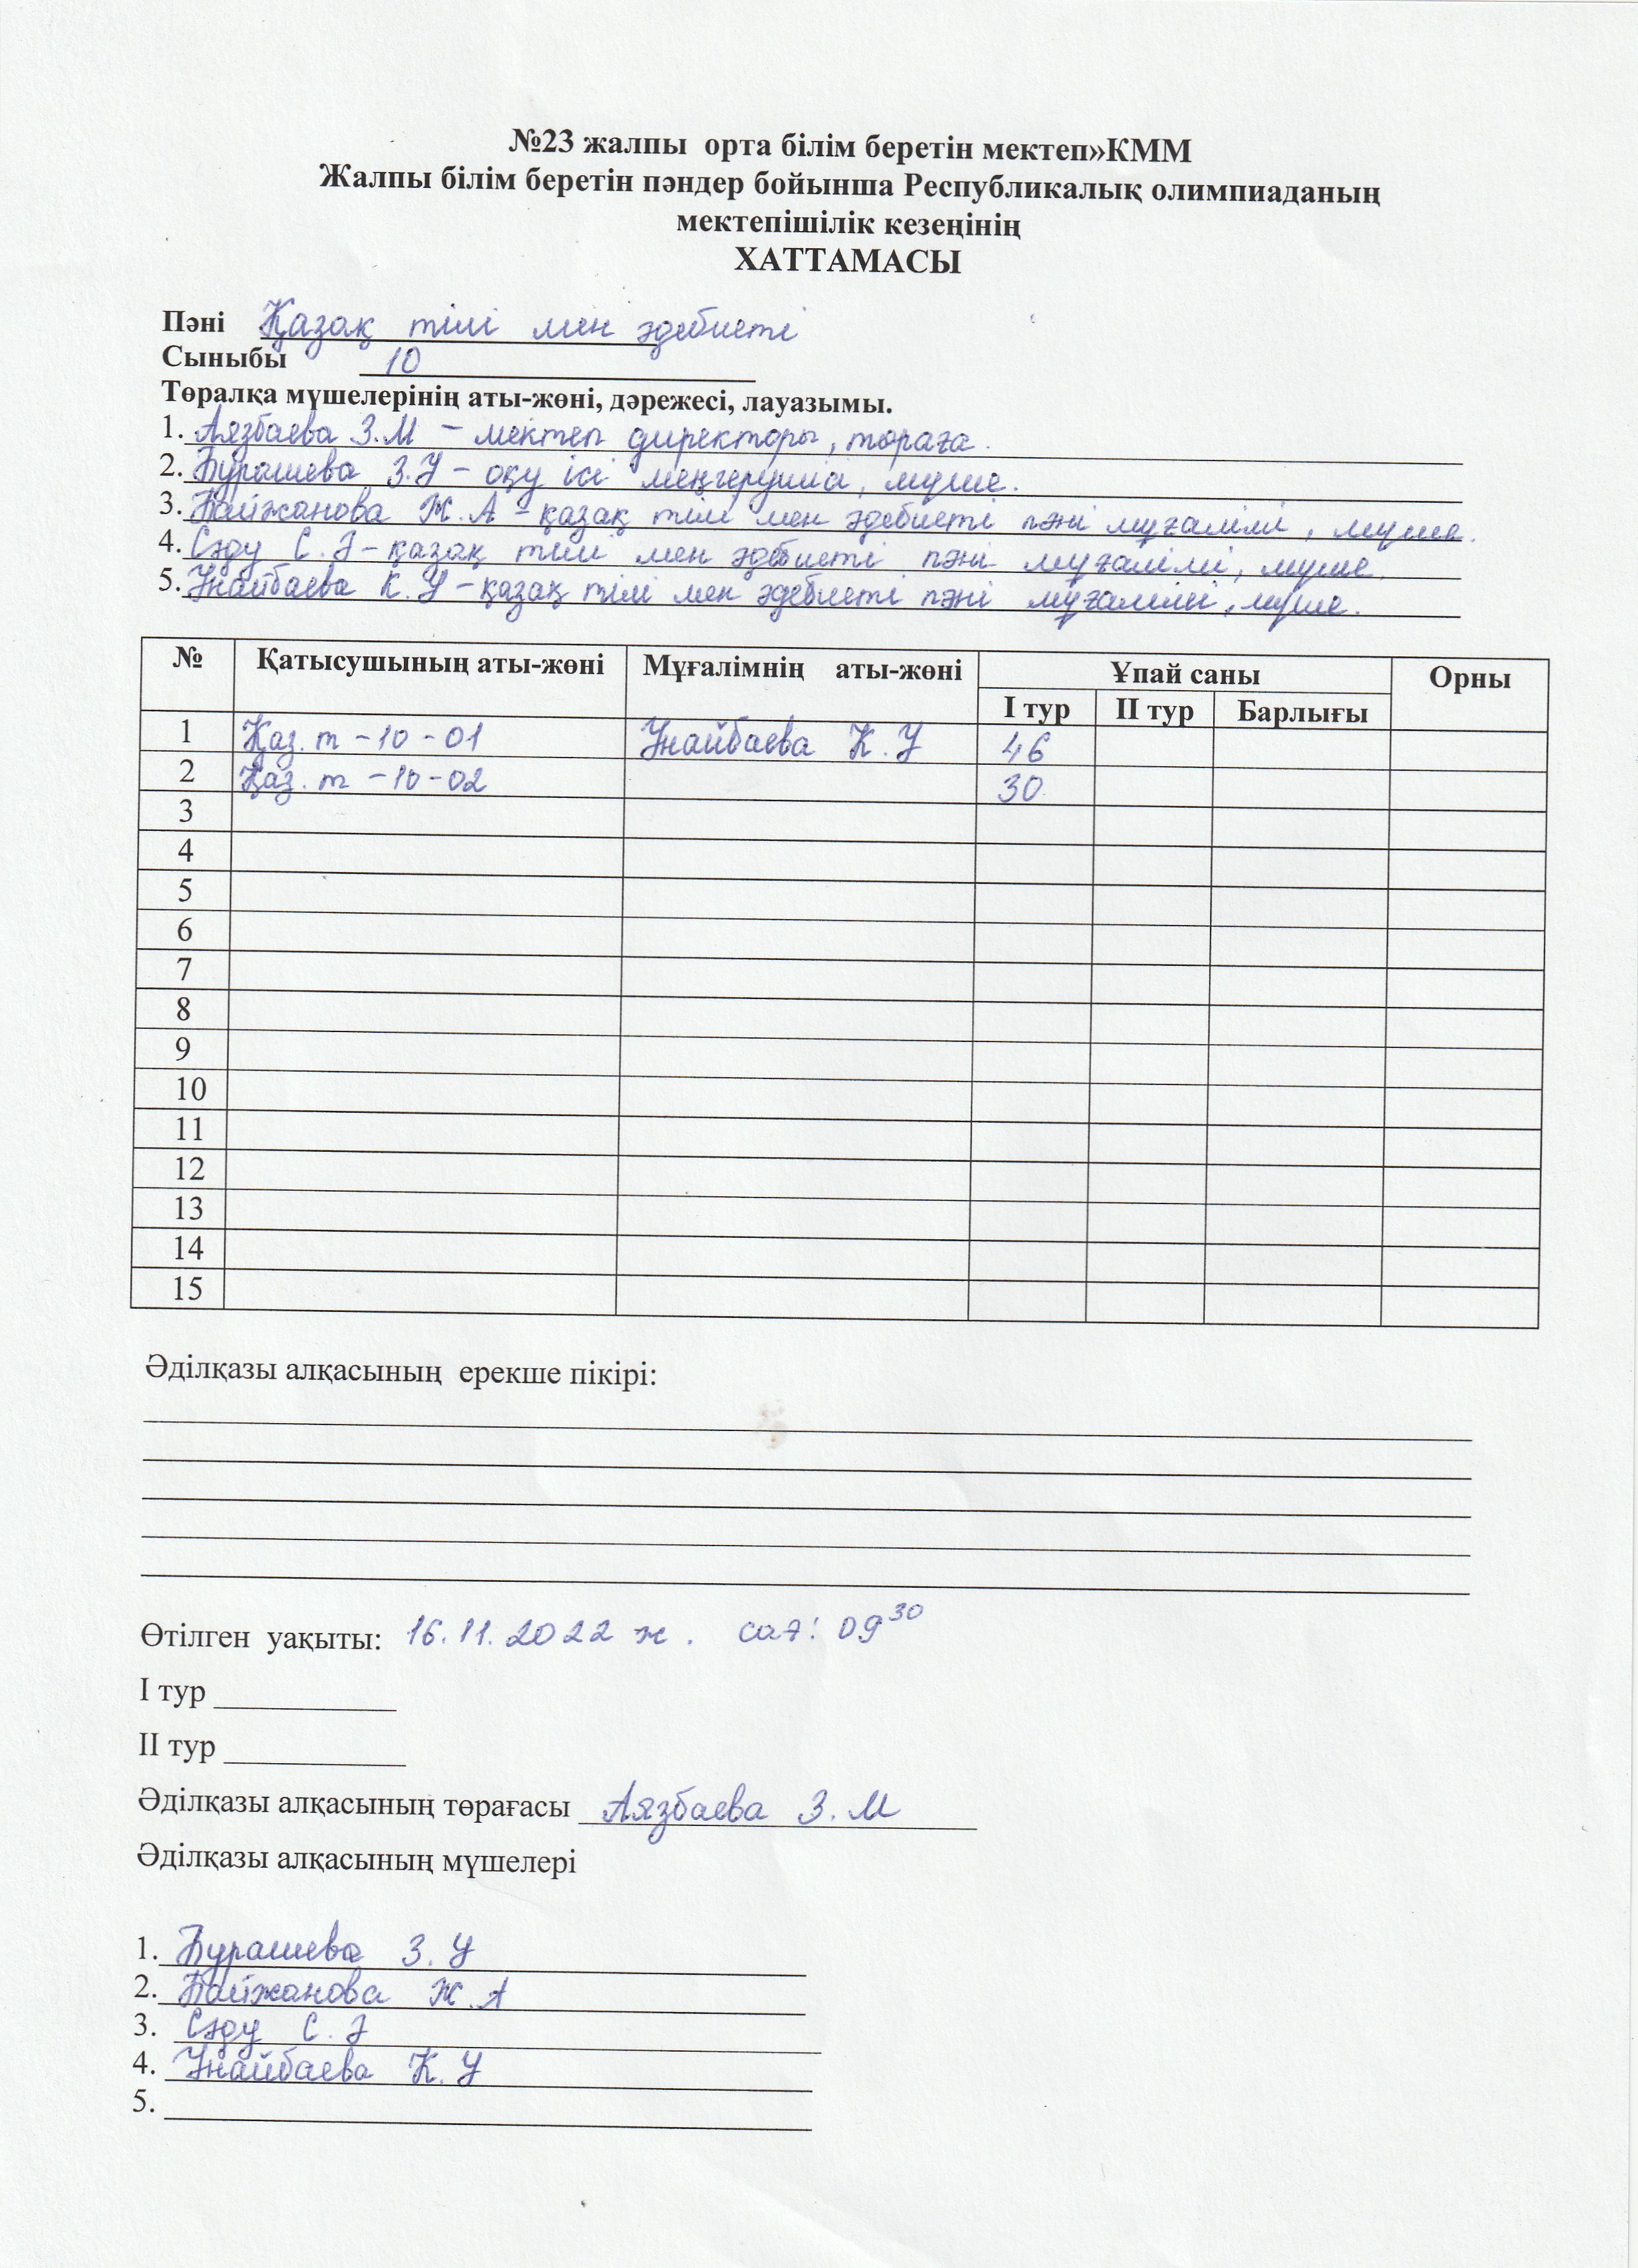 №23 жалпы орта білім беретін мектеп»КММ
Жалпы білім беретін пәндер бойынша Республикалық олимпиаданың
мектепішілік кезеңінің
ХАТТАМАСЫ
Пәні Қазақ тілі мен әдебиеті
Сыныбы 10
Төралқа мүшелерінің аты-жөні, дәрежесі, лауазымы.
1. Аязбаева З.М – мектеп директоры, төраға.
2. Бурашева З.У – оқу ісі меңгеруші, мүше.
3. Байжанова Ж.А – қазақ тілі мен әдебиеті пәні мұғалімі, мүше.
4. Сәду С.Ә – қазақ тілі мен әдебиеті пәні мұғалімі, мүше.
5. Унайбаева К.У – қазақ тілі мен әдебиеті пәні мұғалімі, мүше.
№ Қатысушының аты-жөні Мұғалімнің аты-жөні Ұпай саны Орны
I тур II тур Барлығы
1 Қаз. т – 10 – 01 Унайбаева К.У 46
2 Қаз. т – 10 – 02 30
3
4
5
6
7
8
9
10
11
12
13
14
15
Әділқазы алқасының ерекше пікірі:
Өтілген уақыты: 16.11.2022 ж. сағ: 09 30
I тур
II тур
Әділқазы алқасының төрағасы Аязбаева З.М
Әділқазы алқасының мүшелері
1. Бурашева З.У
2. Байжанова Ж.А
3. Сәду С.Ә
4. Унайбаева К.У
5.